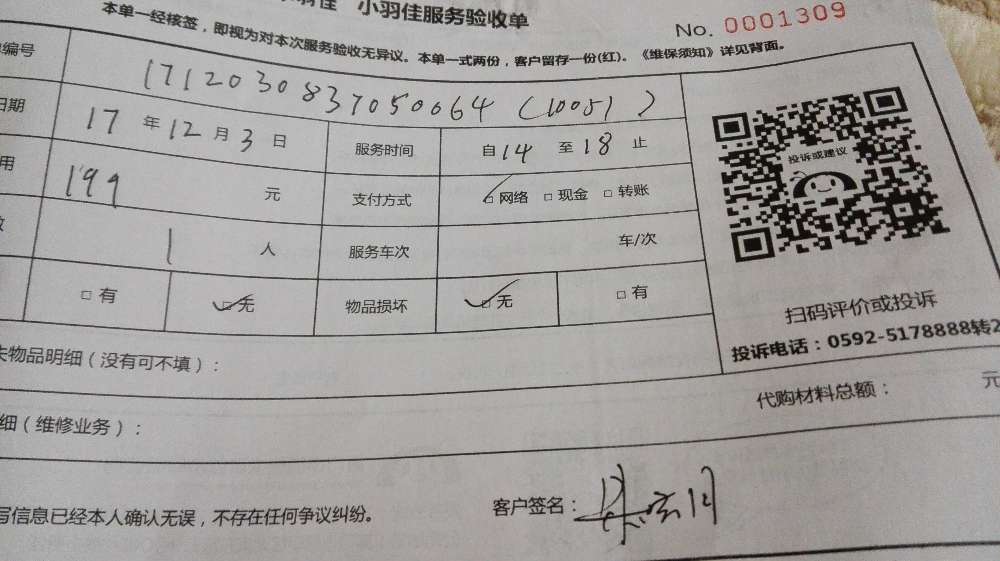 小羽佳服务验收单
No. 0001309
本单一经核签，即视为对本次服务验收无异议。本单一式两份，客户留存一份(红)。《维保须知》详见背面。
编号 1712030837050064 (10051)
日期 17 年 12 月 3 日 服务时间 自 14 至 18 止
用 199 元 支付方式 网络 现金 转账
1 人 服务车次 车/次
有 无 物品损坏 无 有
投诉或建议
扫码评价或投诉
投诉电话：0592-5178888转2
失物品明细（没有可不填）：
代购材料总额： 元
细（维修业务）：
写信息已经本人确认无误，不存在任何争议纠纷。
客户签名：